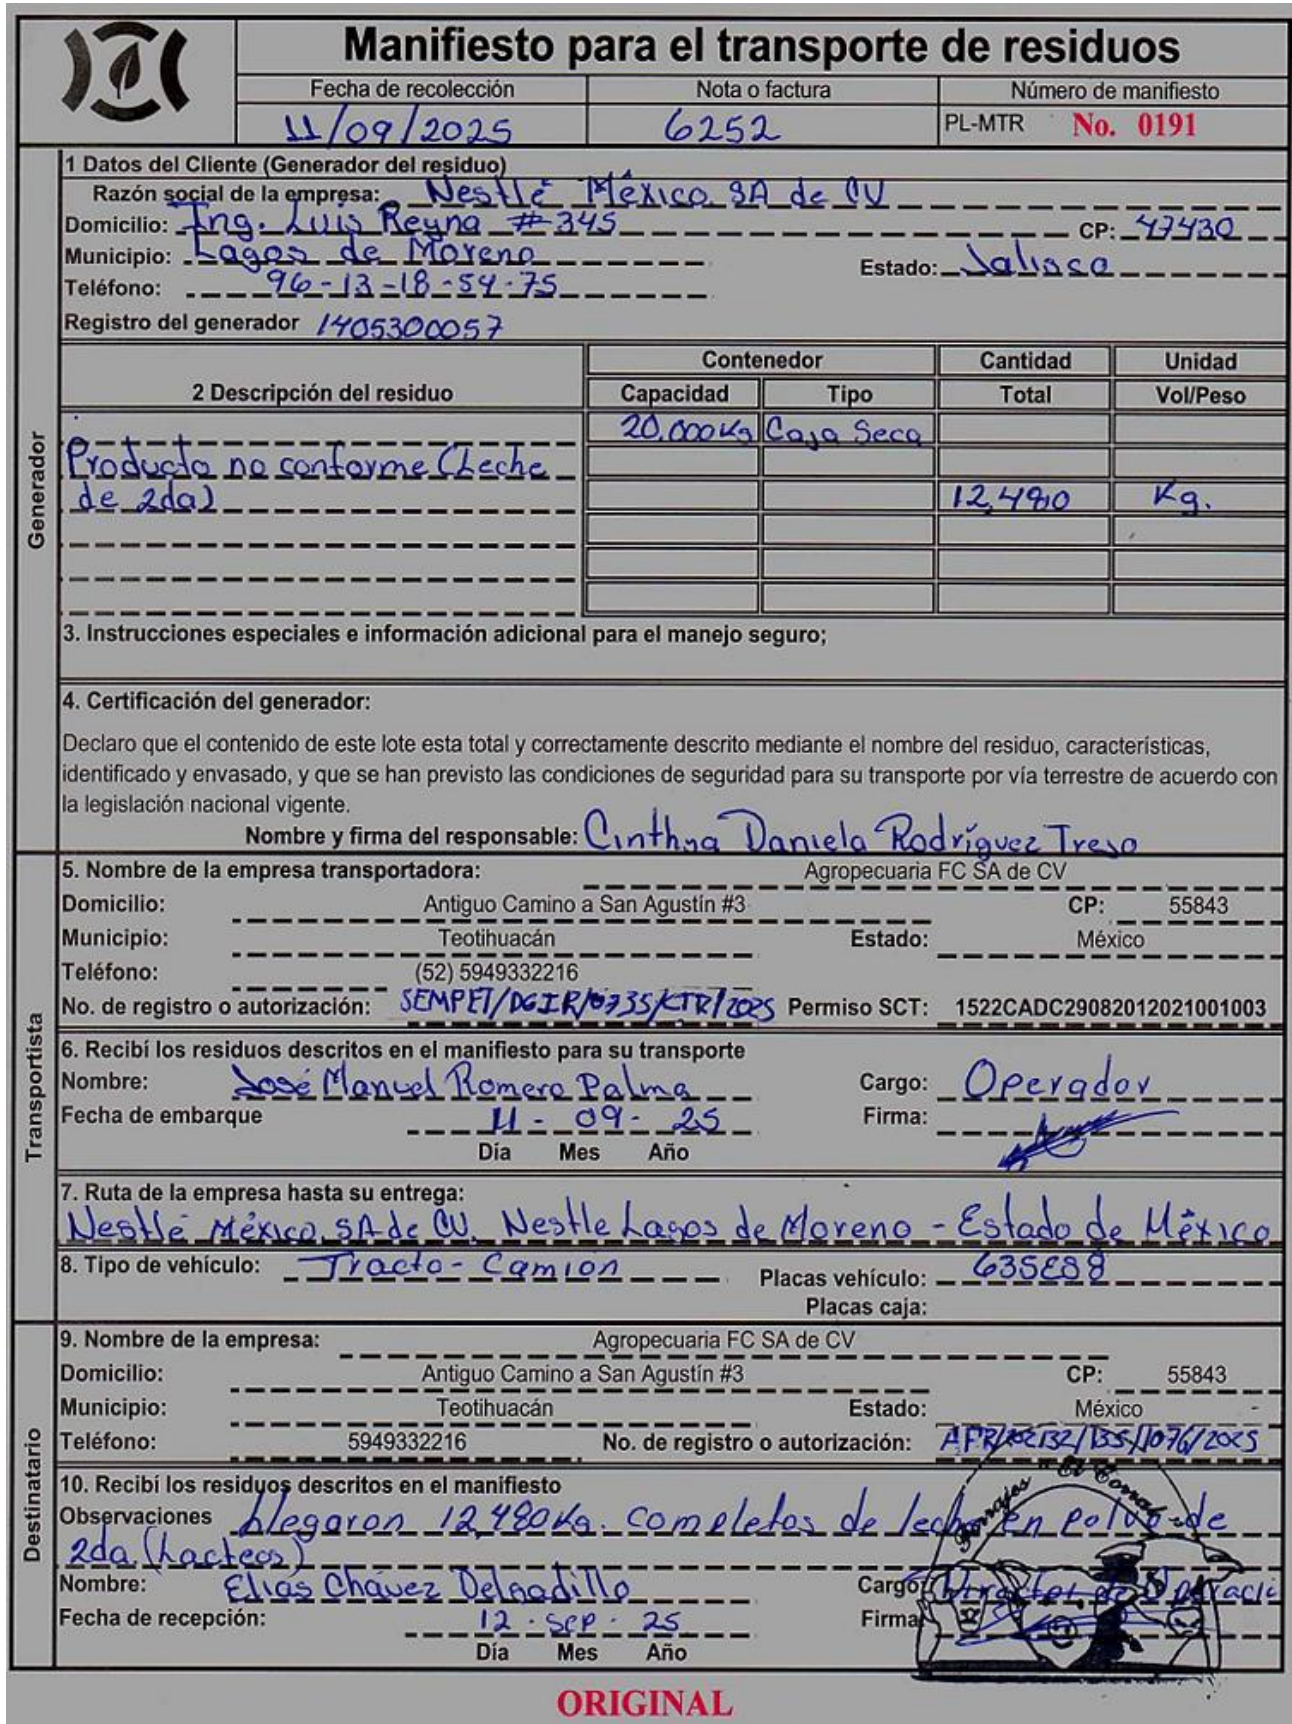 Manifiesto para el transporte de residuos
Fecha de recolección Nota o factura Número de manifiesto
11/09/2025 6252 PL-MTR No. 0191
1 Datos del Cliente (Generador del residuo)
Razón social de la empresa: Nestlé México SA de CV
Domicilio: Ing. Luis Reyna #345 CP: 47430
Municipio: Lagos de Moreno Estado: Jalisco
Teléfono: 96-13-18-54-75
Registro del generador 1405300057
Generador
2 Descripción del residuo Contenedor Cantidad Unidad
Capacidad Tipo Total Vol/Peso
20,000Kg Caja Seca
Producto no conforme (Leche
de 2da) 12,480 Kg.
3. Instrucciones especiales e información adicional para el manejo seguro;
4. Certificación del generador:
Declaro que el contenido de este lote esta total y correctamente descrito mediante el nombre del residuo, características,
identificado y envasado, y que se han previsto las condiciones de seguridad para su transporte por vía terrestre de acuerdo con
la legislación nacional vigente.
Nombre y firma del responsable: Cinthya Daniela Rodríguez
Transportista
5. Nombre de la empresa transportadora: Agropecuaria FC SA de CV
Domicilio: Antiguo Camino a San Agustín #3 CP: 55843
Municipio: Teotihuacán Estado: México
Teléfono: (52) 5949332216
No. de registro o autorización: Permiso SCT: 1522CADC29082012021001003
6. Recibí los residuos descritos en el manifiesto para su transporte
Nombre: José Manuel Romero Palma Cargo: Operador
Fecha de embarque 11 - 09 - 25 Firma:
Día Mes Año
7. Ruta de la empresa hasta su entrega:
Nestlé México SA de CV. Nestle Lagos de Moreno - Estado de México
8. Tipo de vehículo: Tracto-Camión Placas vehículo:
Placas caja:
Destinatario
9. Nombre de la empresa: Agropecuaria FC SA de CV
Domicilio: Antiguo Camino a San Agustín #3 CP: 55843
Municipio: Teotihuacán Estado: México
Teléfono: 5949332216 No. de registro o autorización:
10. Recibí los residuos descritos en el manifiesto
Observaciones Llegaron 12,480Kg. completos de leche en polvo de
2da. (Lacteos)
Nombre: Elías Chávez Delgadillo Cargo: Director de
Fecha de recepción: 12 - sep - 25 Firma
Día Mes Año
Forrajes "El Corral
ORIGINAL